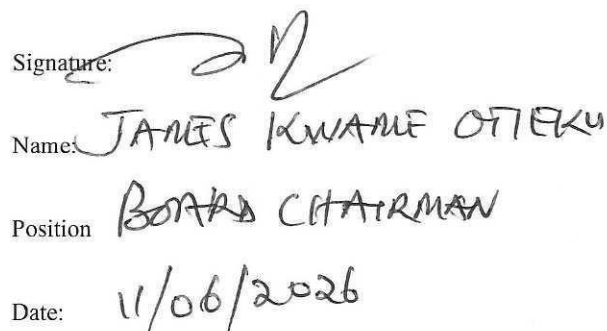 Signature:
Name: JAMES KWAME OTIEKU
Position BOARD CHAIRMAN
Date: 11/06/2026